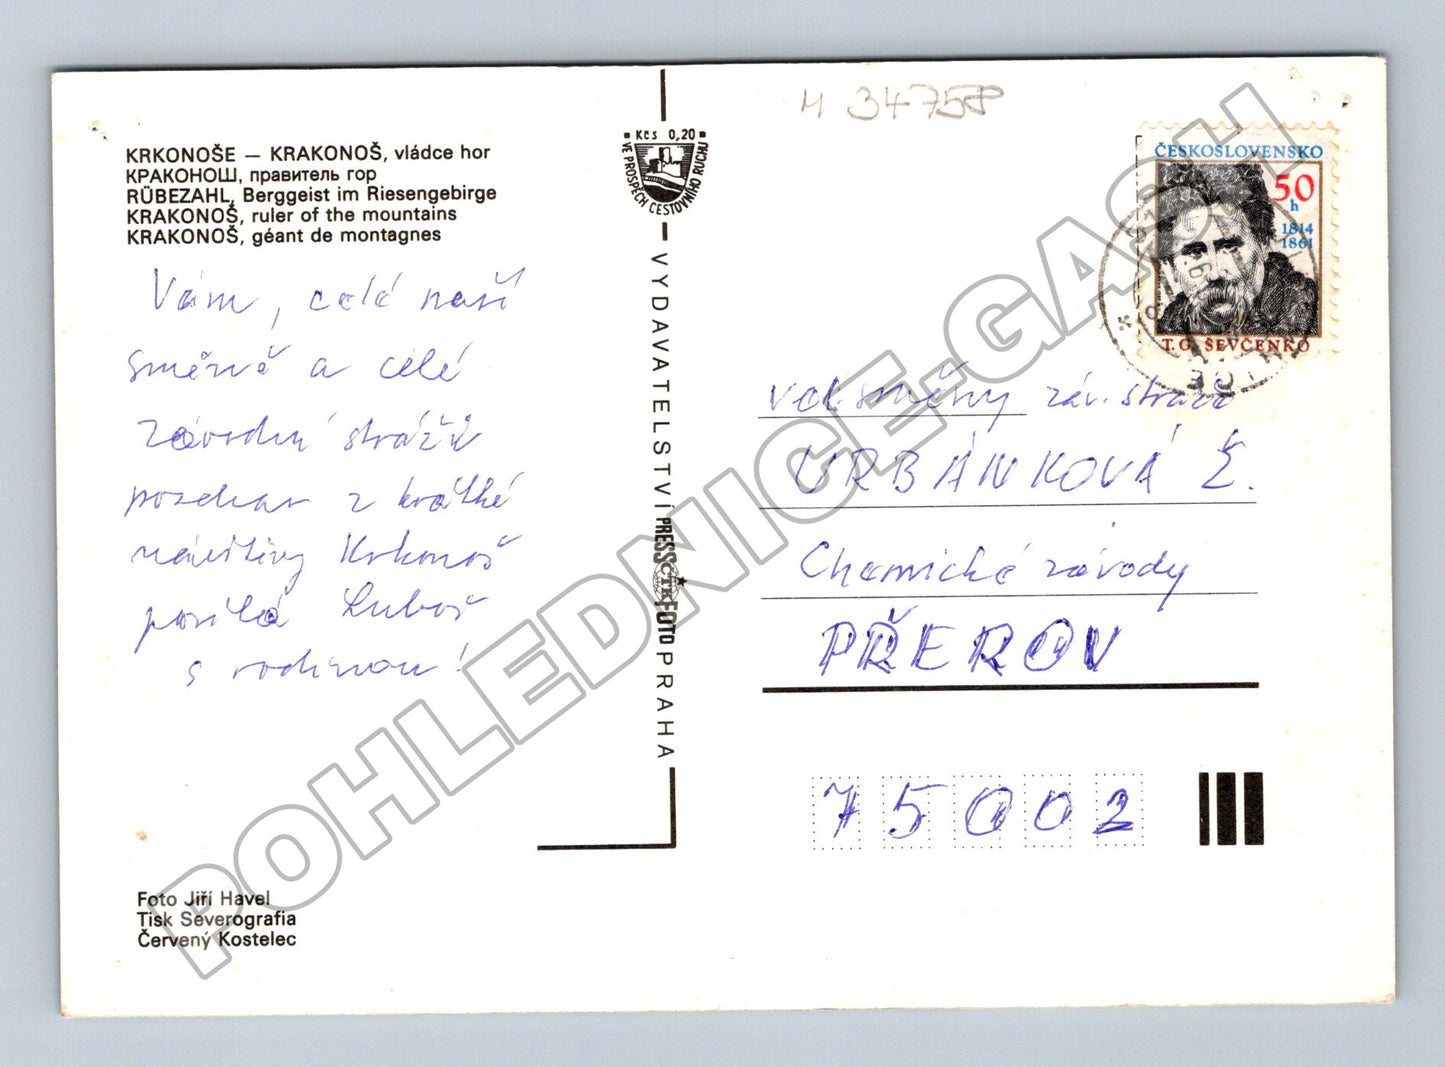 M 34758
KRKONOŠE – KRAKONOŠ, vládce hor
КРАКОНОШ, правитель гор
RÜBEZAHL, Berggeist im Riesengebirge
KRAKONOŠ, ruler of the mountains
KRAKONOŠ, géant de montagnes
Vám, celé naší
směně a celé
závodní stráži
pozdrav z krátké
návštěvy Krkonoš
posílá Luboš
s rodinou!
Foto Jiří Havel
Tisk Severografia
Červený Kostelec
Kčs 0,20
VE PROSPĚCH CESTOVNÍHO RUCHU
VYDAVATELSTVÍ PRESSFOTO PRAHA
ČTK
ČESKOSLOVENSKO
50
h
1814
1861
T. G. ŠEVČENKO
vel. směny záv. stráže
URBÁNKOVÁ Z.
Chemické závody
PŘEROV
75002
POHLEDNICE-GASH